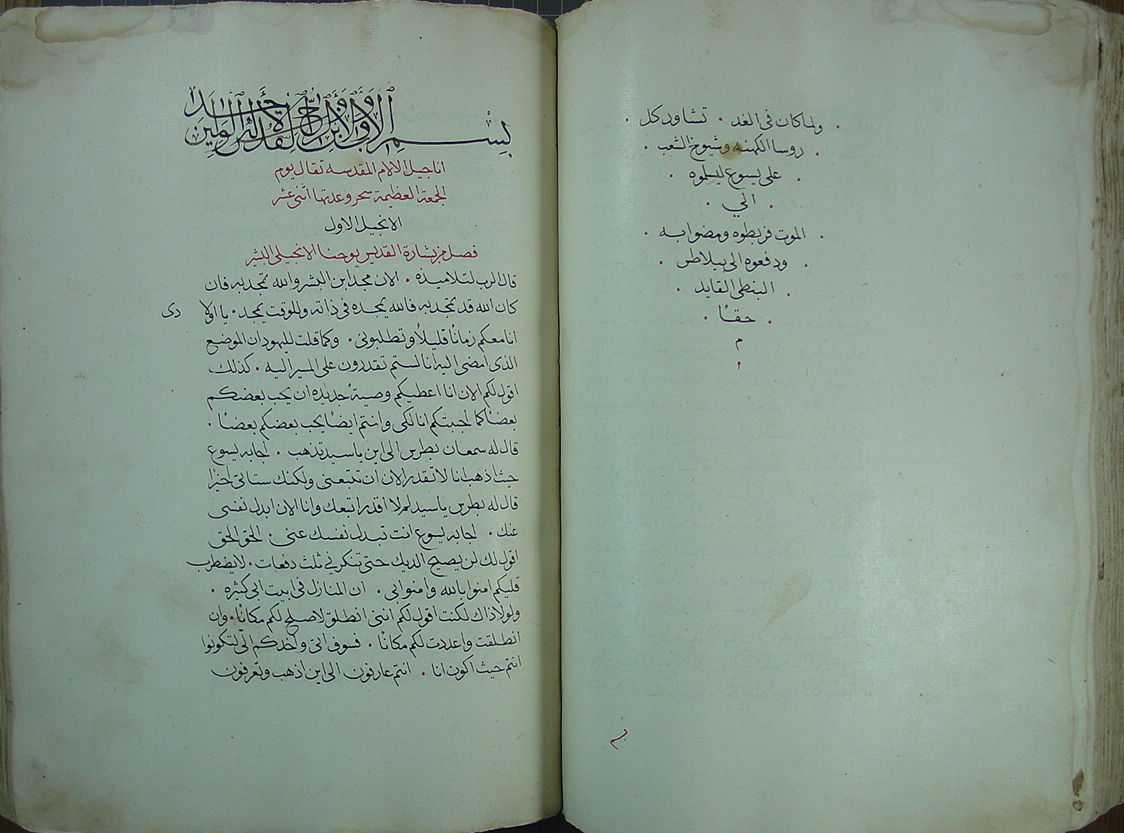 ولما كان فى الغد . تشاور كل .
روسا الكهنه وشيوخ الشعب .
على يسوع ليسلموه .
الي .
الموت فربطوه ومضوا به .
ودفعوه الى بيلاطس .
البنطى القايد .
حقًا .
م
بسم الاب والابن والروح القدس الاله الواحد
اناجيل الالام المقدسه تقال يوم
الجمعة العظيمة سحر وعدتها اثنى عشر
الانجيل الاول
فصل من بشارة القديس يوحنا الانجيلى البشير
قال الرب لتلاميذه . الان مجد ابن البشر والله تمجد به فان
كان الله قد تمجد به فالله يمجده فى ذاته وللوقت يمجد . يا اولا دى
انا معكم زمانًا قليلاً وتطلبونى . وكما قلت لليهود ان الموضع
الذى امضى اليه انا لستم تقدرون على المسير اليه . كذلك
اقول لكم الان انا اعطيكم وصيةً جديده ان يحب بعضكم
بعضًا كما احببتكم انا لكى وانتم ايضًا يحب بعضكم بعضًا .
قال له سمعان بطرس الى اين ياسيد تذهب . اجابه يسوع
حيث اذهب انا لا تقدر الان ان تتبعنى ولكنك ستاتى اخيرًا
قال له بطرس ياسيد لم لا اقدر اتبعك وانا الان ابدل نفسى
عنك . اجابه يسوع انت تبدل نفسك عنى . الحق الحق
اقول لك لن يصيح الديك حتى تنكرنى ثلث دفعات . لا يضطرب
قلبكم امنوا بالله وامنوا بى . ان المنازل فى بيت ابى كثيره .
ولولا ذاك لكنت اقول لكم اننى انطلق لاصلح لكم مكانًا . وان
انطلقت واعددت لكم مكانًا . فسوف اتى واخدكم الى لتكونوا
انتم حيث اكون انا . انتم عارفون الى اين اذهب وتعرفون